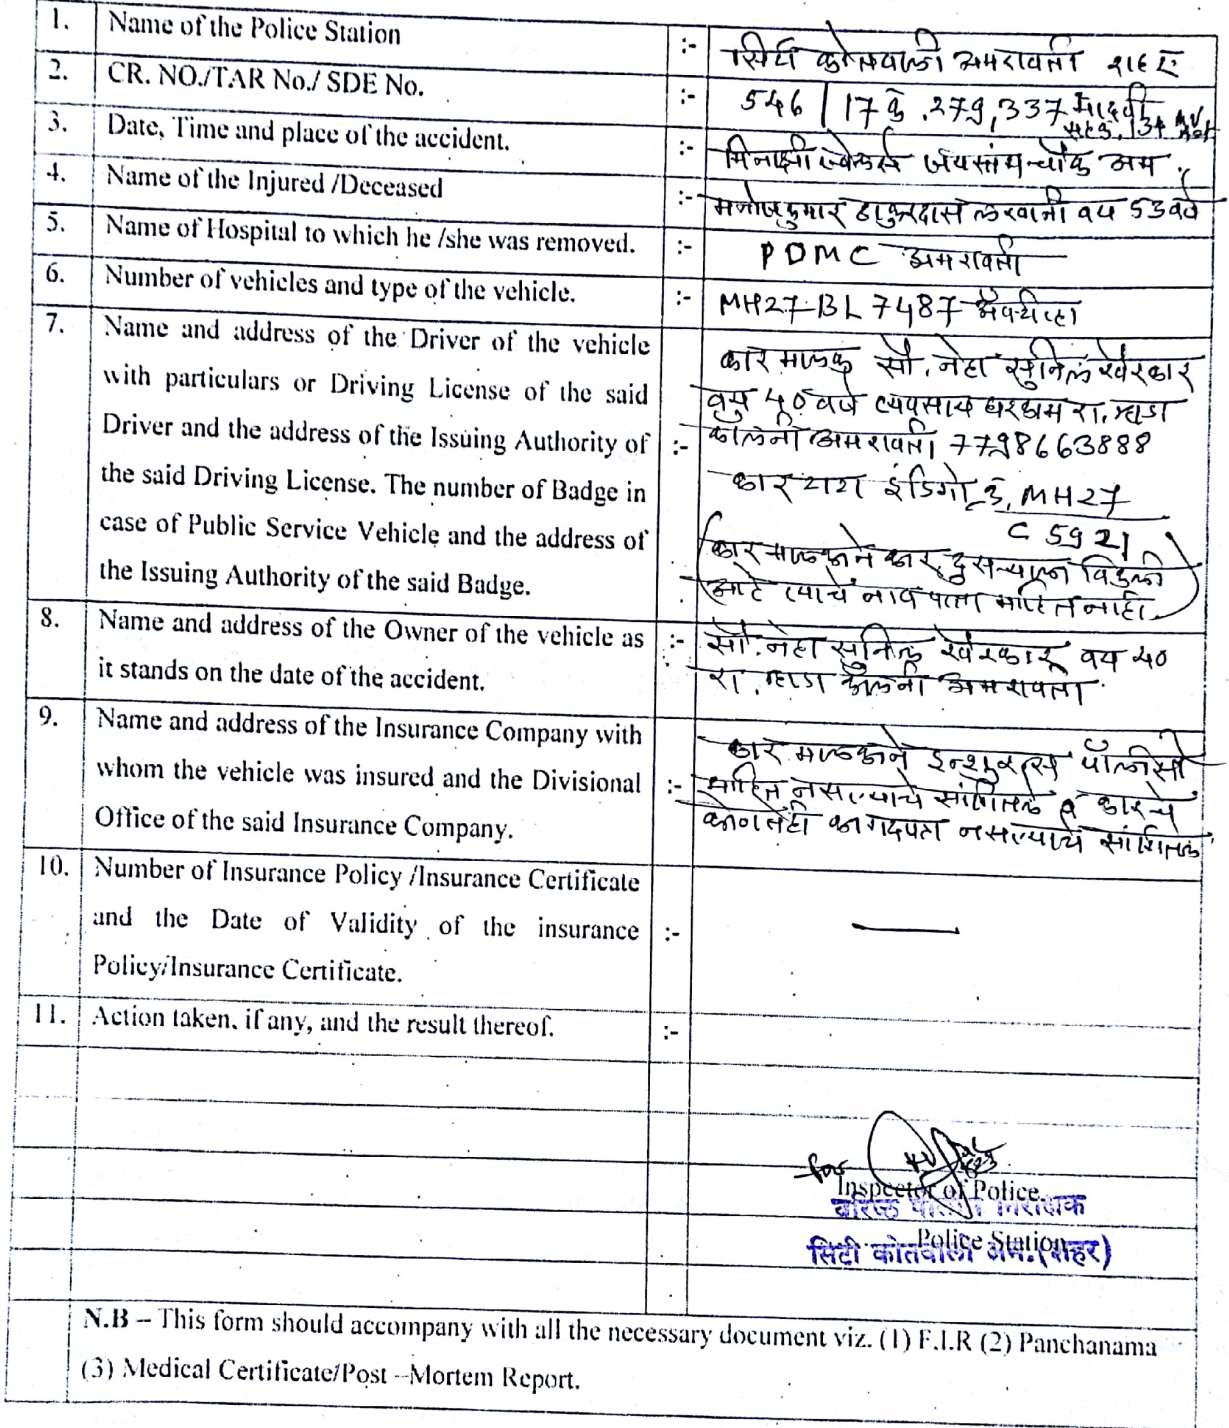 1. Name of the Police Station :- सिटी कोतवाली अमरावती शहर
2. CR. NO./TAR No./ SDE No. :- 546/17 क. 279,337 भादवी
सह क. 134
3. Date, Time and place of the accident. :- मिनाक्षी ज्वेलर्स जयस्तंभ चौक अम.
4. Name of the Injured /Deceased :- मनोजकुमार ठाकुरदास लखानी वय 53 वर्ष
5. Name of Hospital to which he /she was removed. :- PDMC अमरावती
6. Number of vehicles and type of the vehicle. :- MH27-BL 7487
7. Name and address of the Driver of the vehicle
with particulars or Driving License of the said
Driver and the address of the Issuing Authority of
the said Driving License. The number of Badge in
case of Public Service Vehicle and the address of
the Issuing Authority of the said Badge.
:- कार मालक सौ. नेहा सुनिल खेरकार
वय 40 वर्ष व्यवसाय घरकाम रा. म्हाडा
कॉलनी अमरावती 7798663888
कार टाटा इंडिगो क्रं. MH27
C 5921
(कार मालकाने कार दुसऱ्याला विकली
आहे त्याचे नाव पत्ता माहित नाही)
8. Name and address of the Owner of the vehicle as
it stands on the date of the accident.
:- सौ. नेहा सुनिल खेरकार वय 40
रा. म्हाडा कॉलनी अमरावती
9. Name and address of the Insurance Company with
whom the vehicle was insured and the Divisional
Office of the said Insurance Company.
:- कार मालकाने इन्शुरन्स पॉलिसी
माहित नसल्याचे सांगितले व कारचे
कोणतेही कागदपत्र नसल्याचे सांगितले
10. Number of Insurance Policy /Insurance Certificate
and the Date of Validity of the insurance :-
Policy/Insurance Certificate.
11. Action taken, if any, and the result thereof. :-
for
Inspector of Police
वरिष्ठ पोलीस निरीक्षक
Police Station
सिटी कोतवाली अम.(शहर)
N.B – This form should accompany with all the necessary document viz. (1) F.I.R (2) Panchanama
(3) Medical Certificate/Post –Mortem Report.